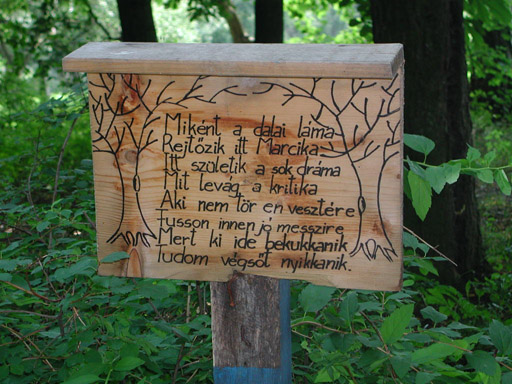 Miként a dalai láma
Rejtőzik itt Marcika
Itt születik a sok dráma
Mit levág a kritika
Aki nem tör én vesztére
Fusson innen jó messzire
Mert ki ide bekukkanik
Tudom végsőt nyikkanik.